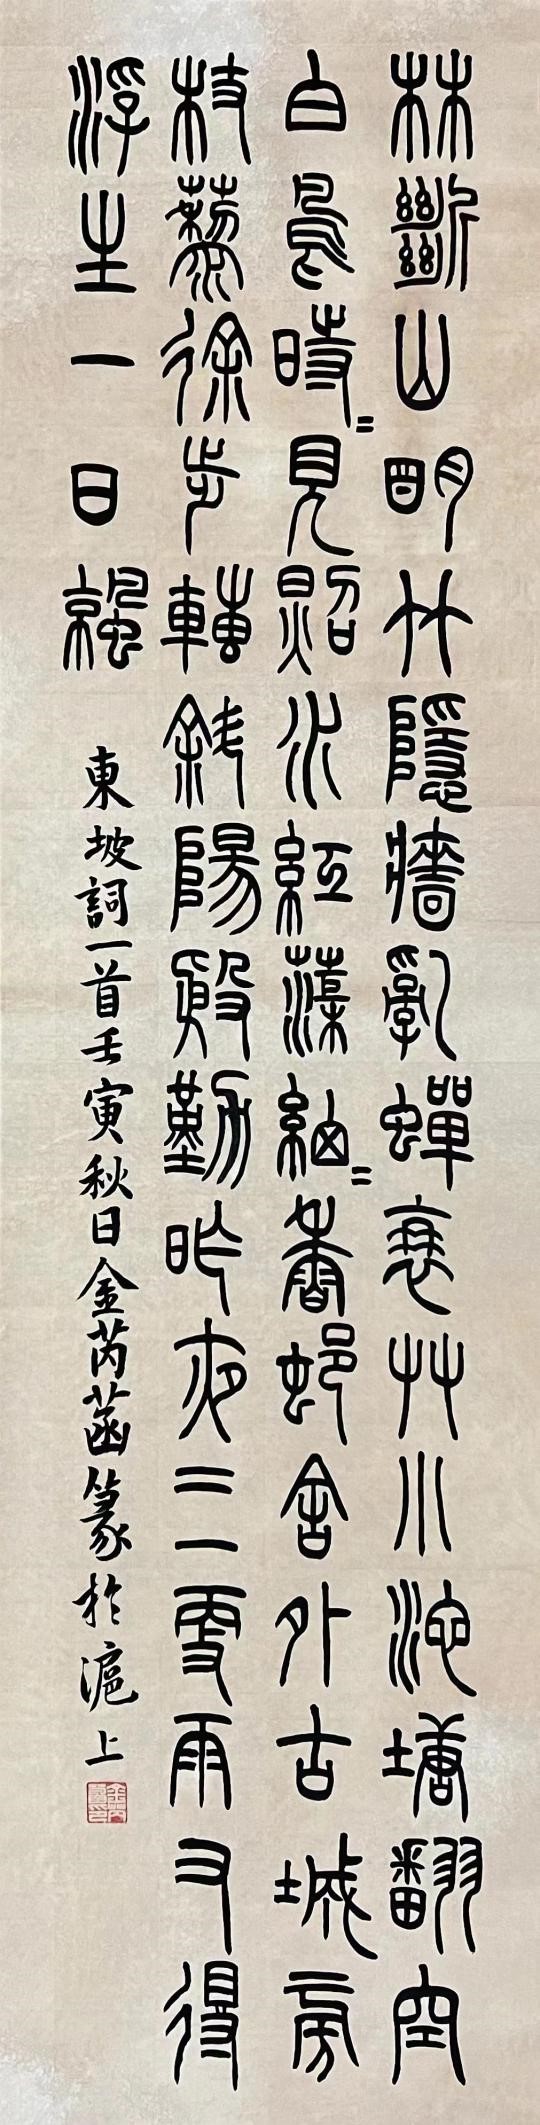 林斷山明竹隱牆亂蟬衰艸小池塘翻空
白鳥時〻見照水紅蕖細〻香邨舍外古城旁
杖藜徐步轉斜陽殷勤昨夜三更雨又得
浮生一日涼
東坡詞一首壬寅秋日金芮菡篆於滬上